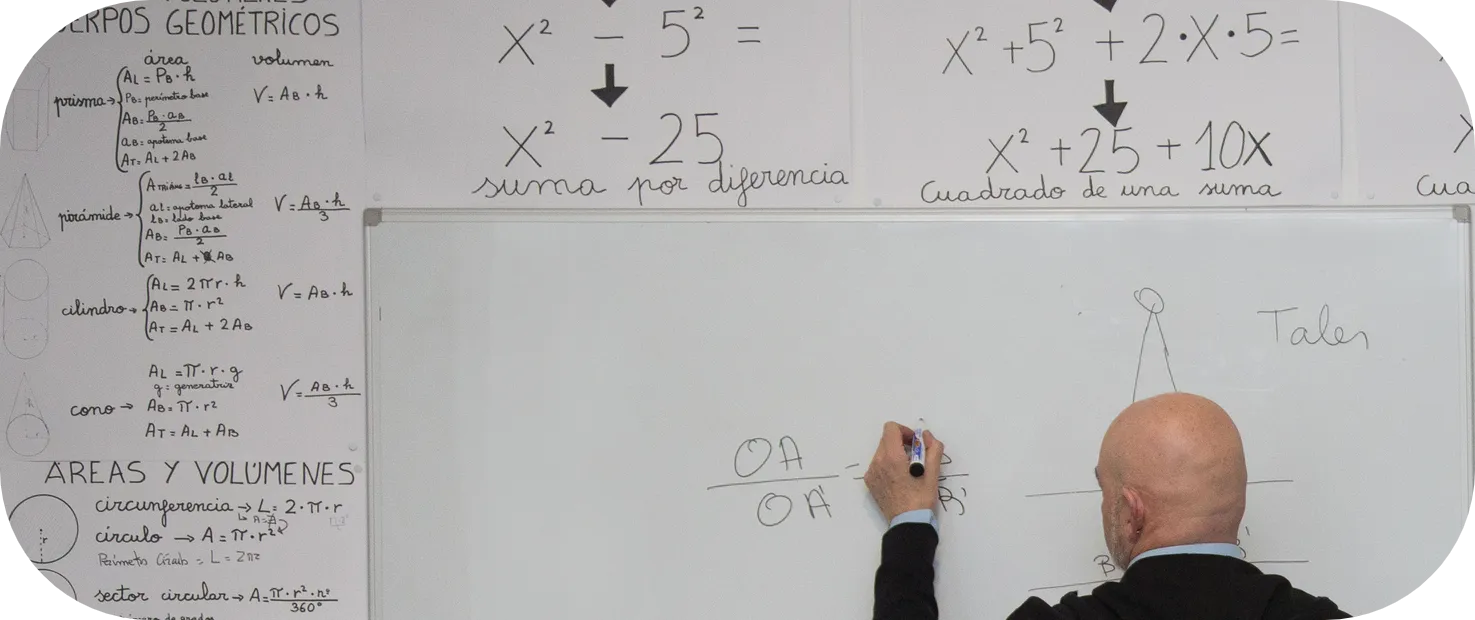 CUERPOS GEOMÉTRICOS
área volumen
prisma → AL = PB · h
PB = perímetro base
V = AB · h
AB = PB · aB / 2
aB = apotema base
AT = AL + 2AB
pirámide → ATRIÁNG = lB · al / 2
al = apotema lateral
lB = lado base
V = AB · h / 3
AB = PB · aB / 2
AT = AL + AB
cilindro → AL = 2πr · h
AB = π · r²
AT = AL + 2AB
V = AB · h
cono → AL = π · r · g
g = generatriz
AB = π · r²
AT = AL + AB
V = AB · h / 3
ÁREAS Y VOLÚMENES
circunferencia → L = 2 · π · r
círculo → A = π · r²
r
sector circular → A = π · r² · n° / 360°
x² − 5² =
x² − 25
suma por diferencia
x² + 5² + 2 · x · 5 =
x² + 25 + 10x
Cuadrado de una suma
Cua
Tales
OA
OA'
B'
B